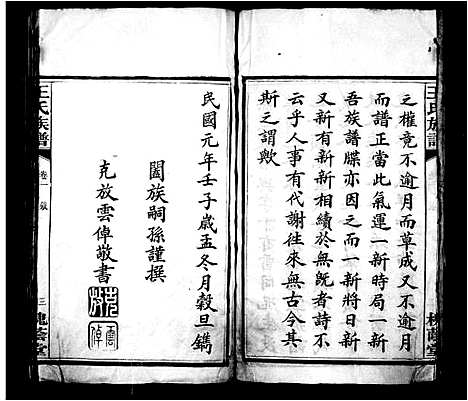 王氏族譜
之權竟不逾月而草成又不逾月
而譜正當此氣運一新時局一新
吾族譜牒亦因之而一新將日新
又新有新新相續於無旣者詩不
云乎人事有代謝徃來無古今其
斯之謂歟
民國元年壬子歲孟冬月穀旦鐫
闔族嗣孫謹撰
克放雲倬敬書
王氏族譜
卷一
敘
三
槐蔭堂